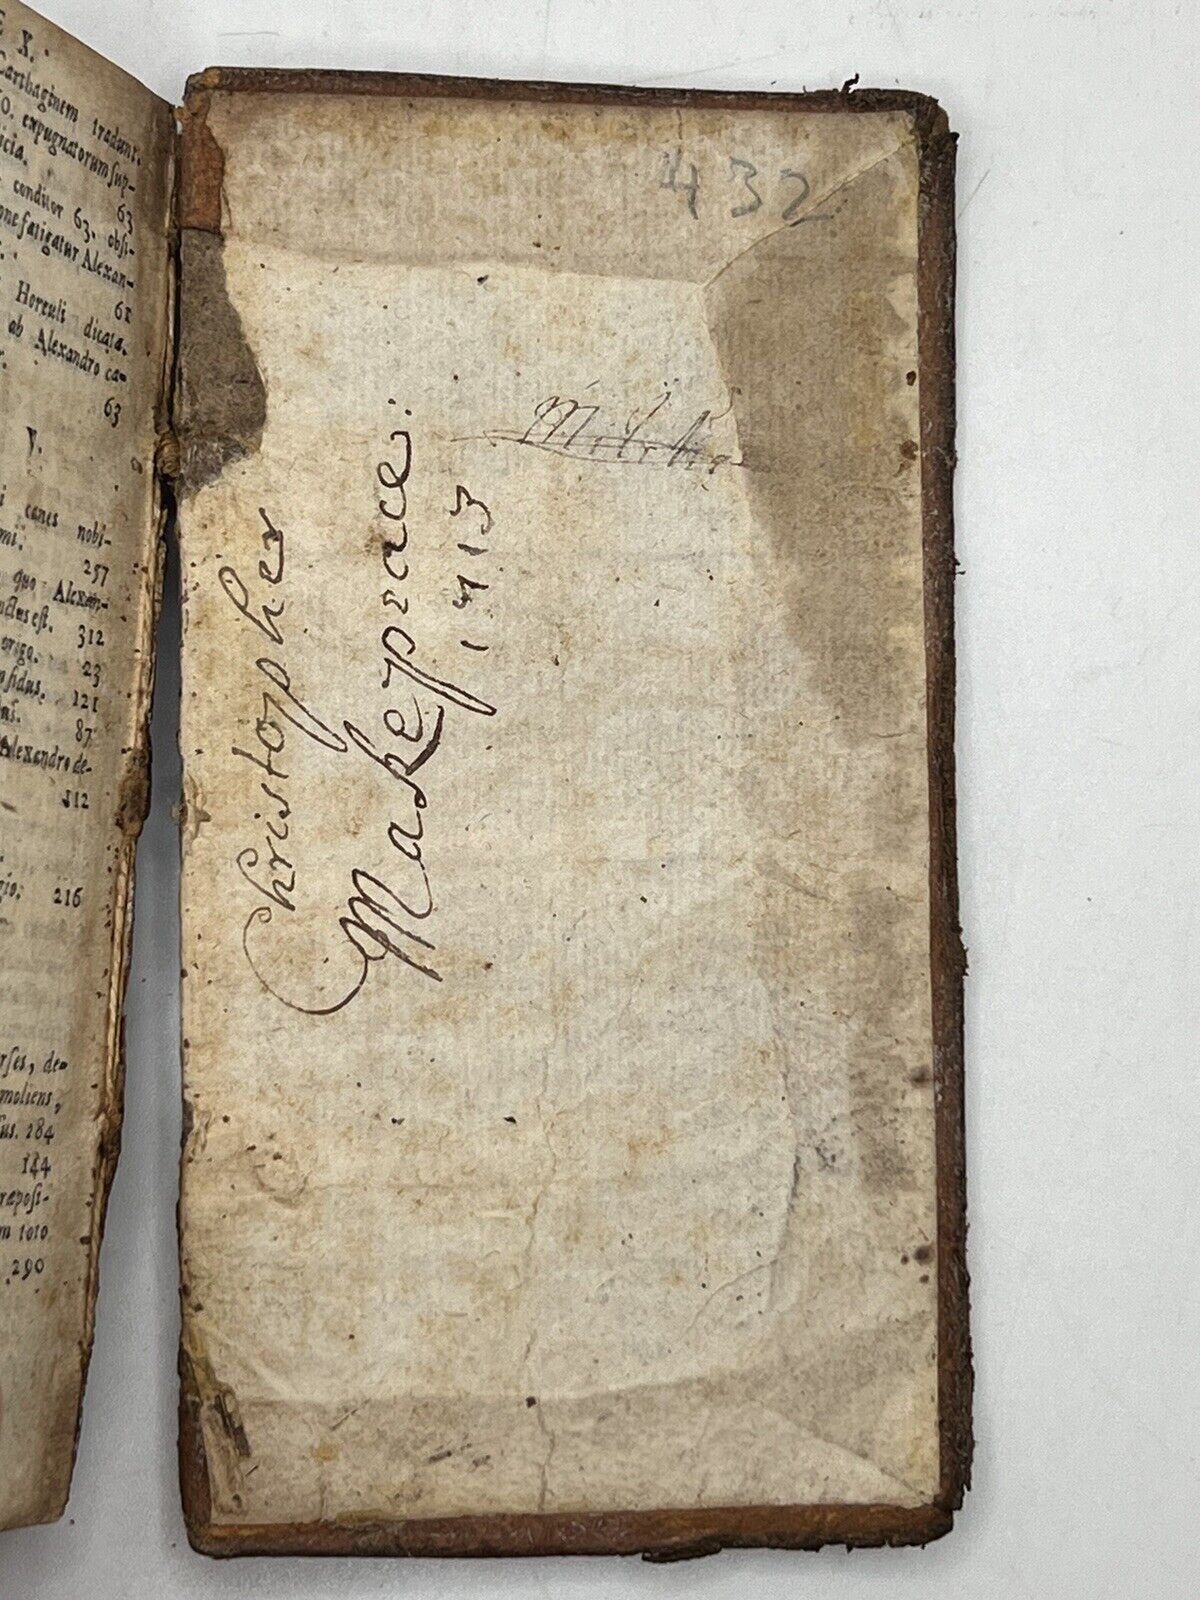 E X.
Carthaginem tradunt.
60. expugnatorum sup-
licia. 63
conditor 63. obsi-
one fatigatur Alexan-
61
Herculi dicata.
ab Alexandro ca-
63
V.
canes nobi-
257
quo Alexan-
nctus est. 312
origo. 23
fidus. 121
87
Alexandro de-
312
gio. 216
rses, de-
moliens,
sus. 184
144
ræposi-
m toto
290
432
Christopher
Makepeace:
1713